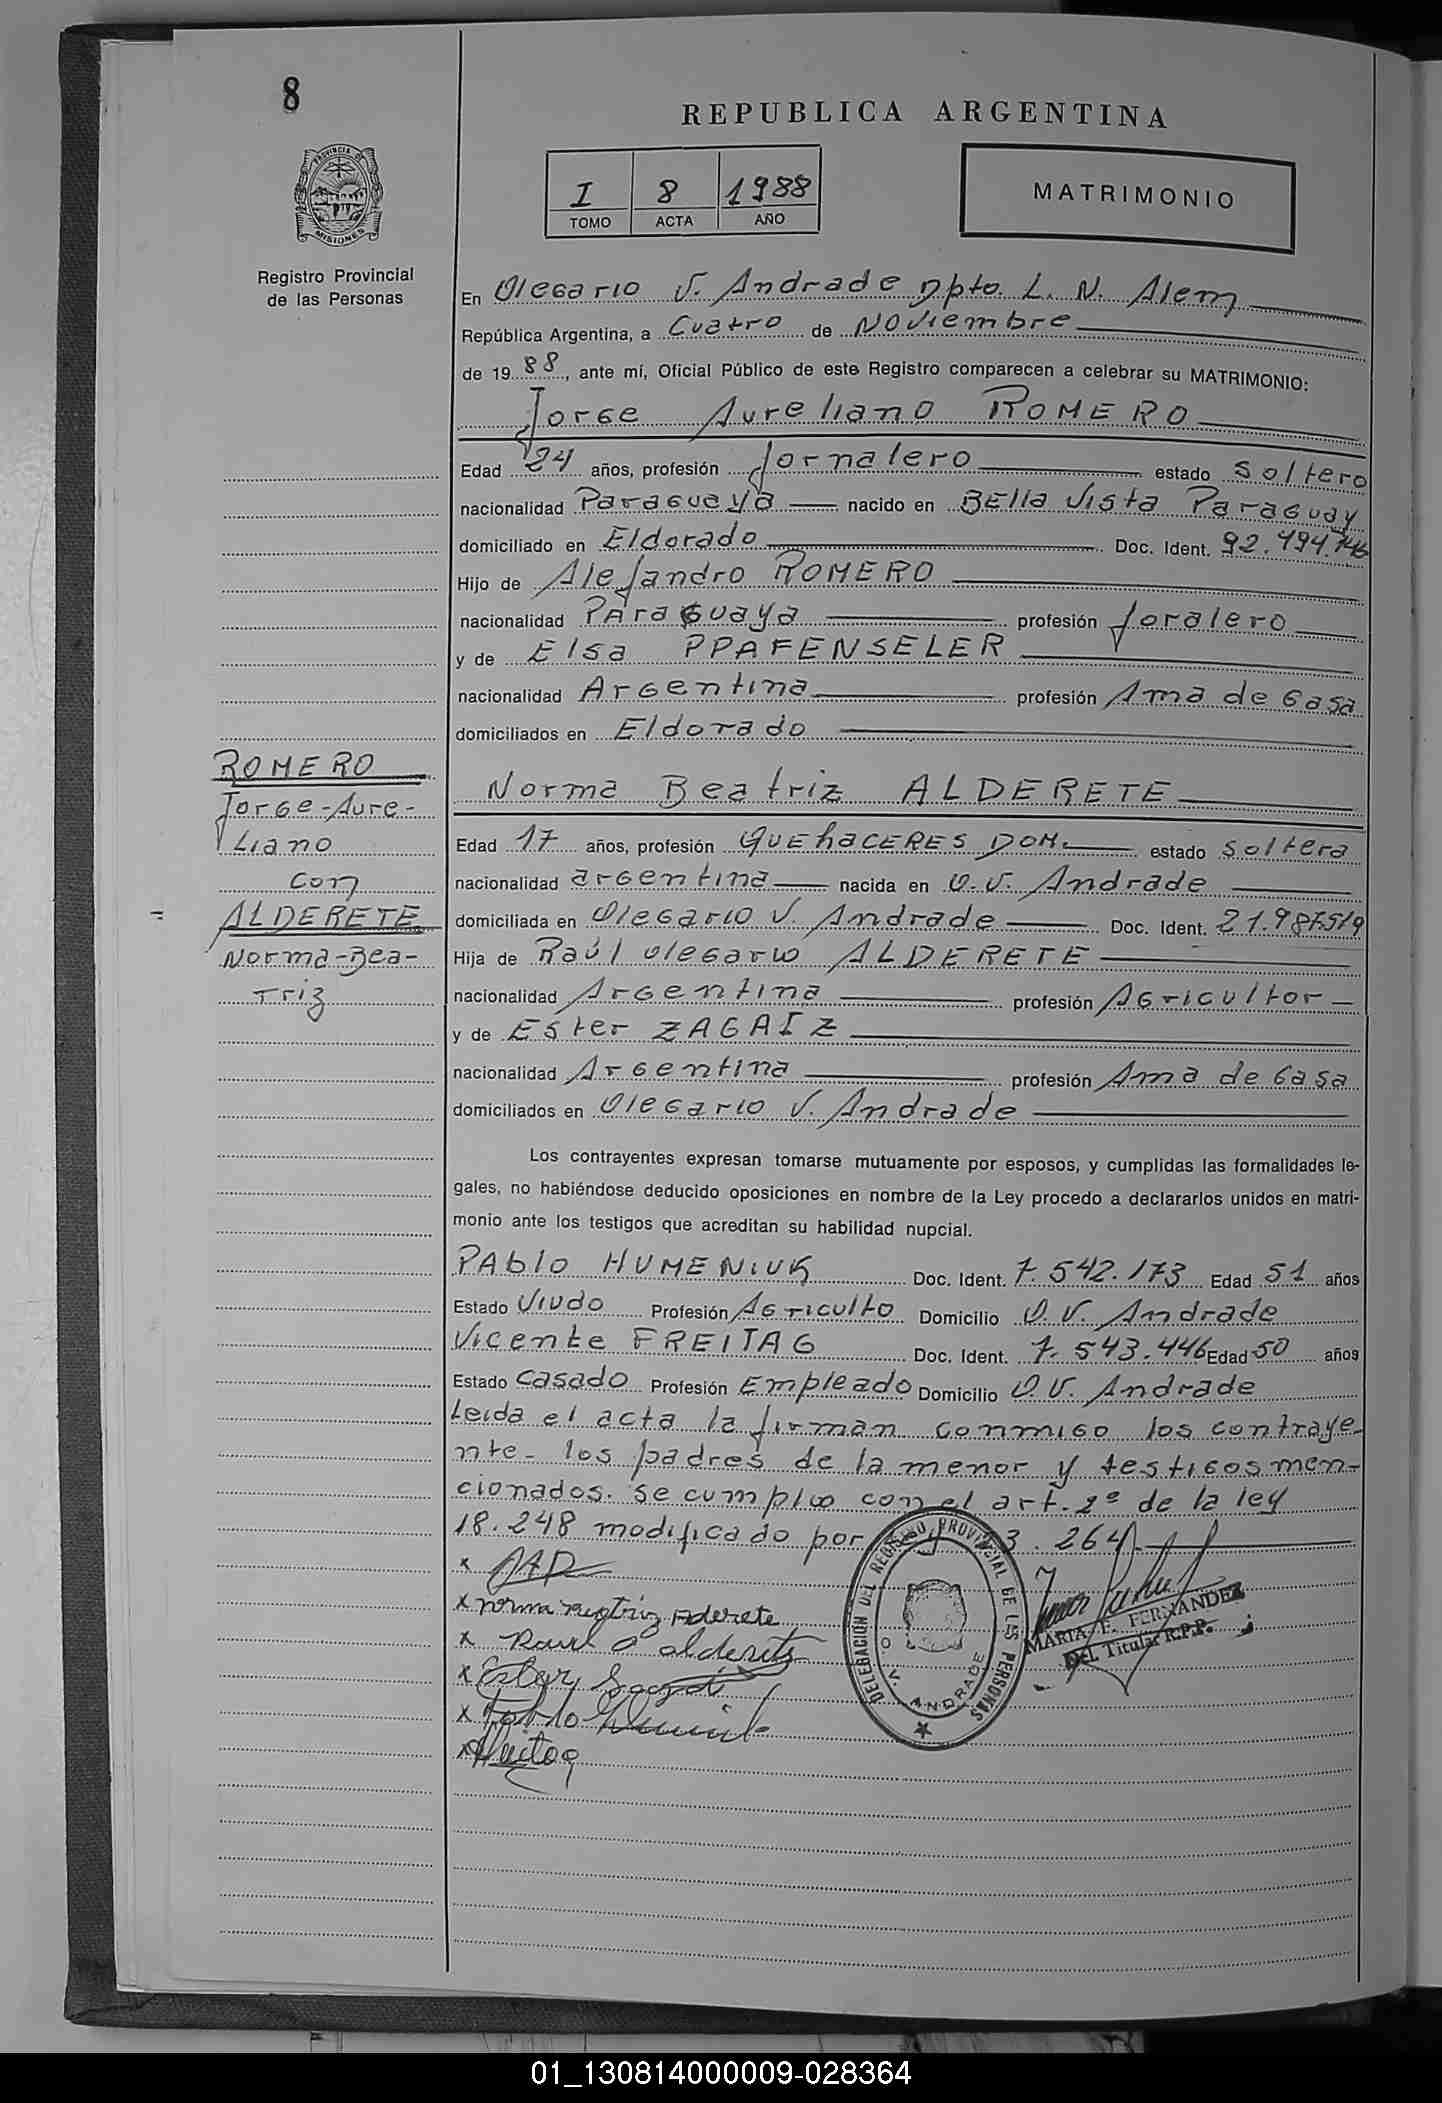 8
REPUBLICA ARGENTINA
PROVINCIA DE
MISIONES
Registro Provincial
de las Personas
I 8 1988
TOMO ACTA AÑO
MATRIMONIO
En Olegario V. Andrade Dpto. L. N. Alem
República Argentina, a Cuatro de Noviembre
de 19 88, ante mí, Oficial Público de este Registro comparecen a celebrar su MATRIMONIO:
Jorge Aureliano ROMERO
Edad 24 años, profesión Jornalero estado soltero
nacionalidad Paraguaya nacido en BElla Vista Paraguay
domiciliado en Eldorado Doc. Ident. 92.494.746
Hijo de Alejandro ROMERO
nacionalidad PAraguaya profesión Joralero
y de Elsa PPAFENSELER
nacionalidad Argentina profesión Ama de Casa
domiciliados en Eldorado
Norma Beatriz ALDERETE
Edad 17 años, profesión QUEhaCERES DOM. estado soltera
nacionalidad argentina nacida en O.V. Andrade
domiciliada en Olegario V. Andrade Doc. Ident. 21.987.519
Hija de Raúl Olegario ALDERETE
nacionalidad Argentina profesión Agricultor
y de Ester ZAGAIZ
nacionalidad Argentina profesión Ama de Casa
domiciliados en Olegario V. Andrade
ROMERO
Jorge-Aure-
Liano
con
ALDERETE
Norma-Bea-
Triz
Los contrayentes expresan tomarse mutuamente por esposos, y cumplidas las formalidades le-
gales, no habiéndose deducido oposiciones en nombre de la Ley procedo a declararlos unidos en matri-
monio ante los testigos que acreditan su habilidad nupcial.
PAblo HUMENIUK Doc. Ident. 7.542.173 Edad 51 años
Estado Viudo Profesión Agriculto Domicilio O.V. Andrade
Vicente FREITAG Doc. Ident. 7.543.446 Edad 50 años
Estado Casado Profesión Empleado Domicilio O.V. Andrade
Leida el acta la firman conmigo los contraye-
nte- los padres de la menor y testigos men-
cionados. se cumplio con el art. 2º de la ley
18.248 modificado por 3.264.
x
x norma Beatriz Alderete
x Raul O alderete
x Ester
x Pablo
x Freitag
DELEGACIÓN DEL REGISTRO PROVINCIAL DE LAS PERSONAS
O. V. ANDRADE
MARIA E. FERNANDEZ
Del. Titular R.P.P.
01_130814000009-028364